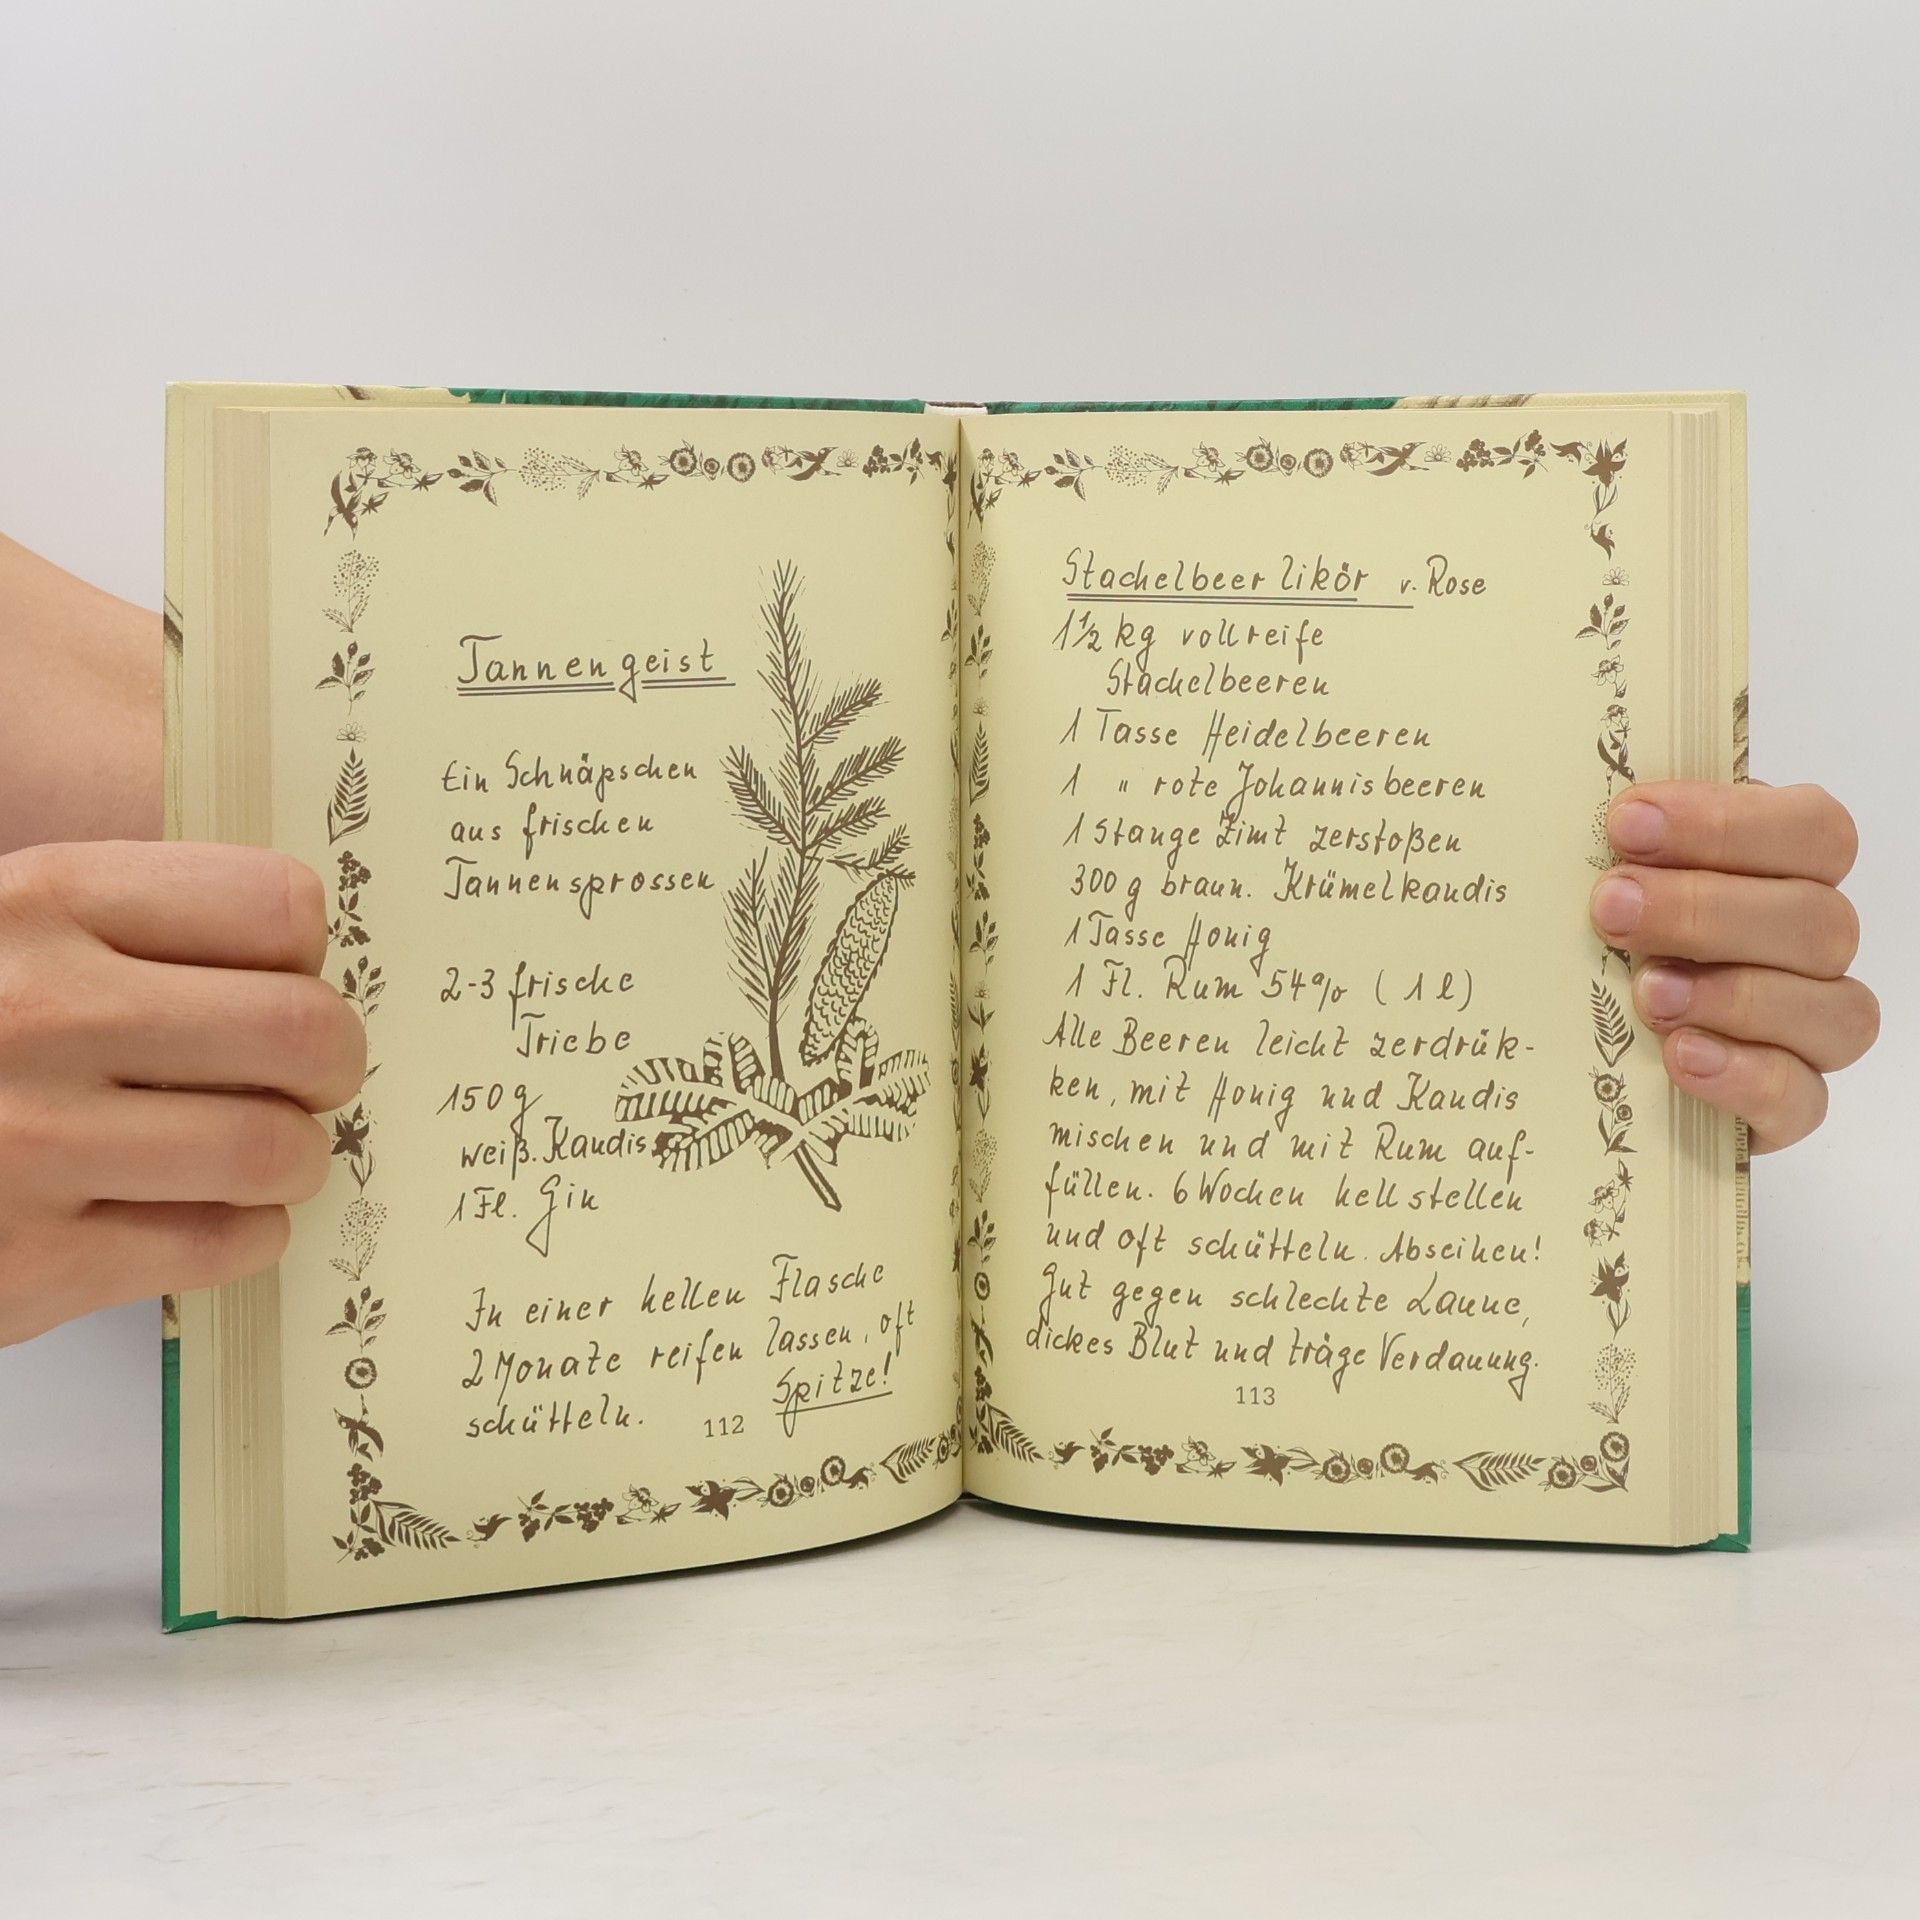 Tannengeist
Ein Schnäpschen
aus frischen
Tannensprossen
2-3 frische
Triebe
150 g
weiß. Kandis
1 Fl. Gin
In einer hellen Flasche
2 Monate reifen lassen, oft
schütteln. Spitze!
112
Stachelbeerlikör v. Rose
1 1/2 kg vollreife
Stachelbeeren
1 Tasse Heidelbeeren
1 " rote Johannisbeeren
1 Stange Zimt zerstoßen
300 g braun. Krümelkandis
1 Tasse Honig
1 Fl. Rum 54% (1 l)
Alle Beeren leicht zerdrük-
ken, mit Honig und Kandis
mischen und mit Rum auf-
füllen. 6 Wochen hell stellen
und oft schütteln. Abseihen!
Gut gegen schlechte Laune,
dickes Blut und träge Verdauung.
113